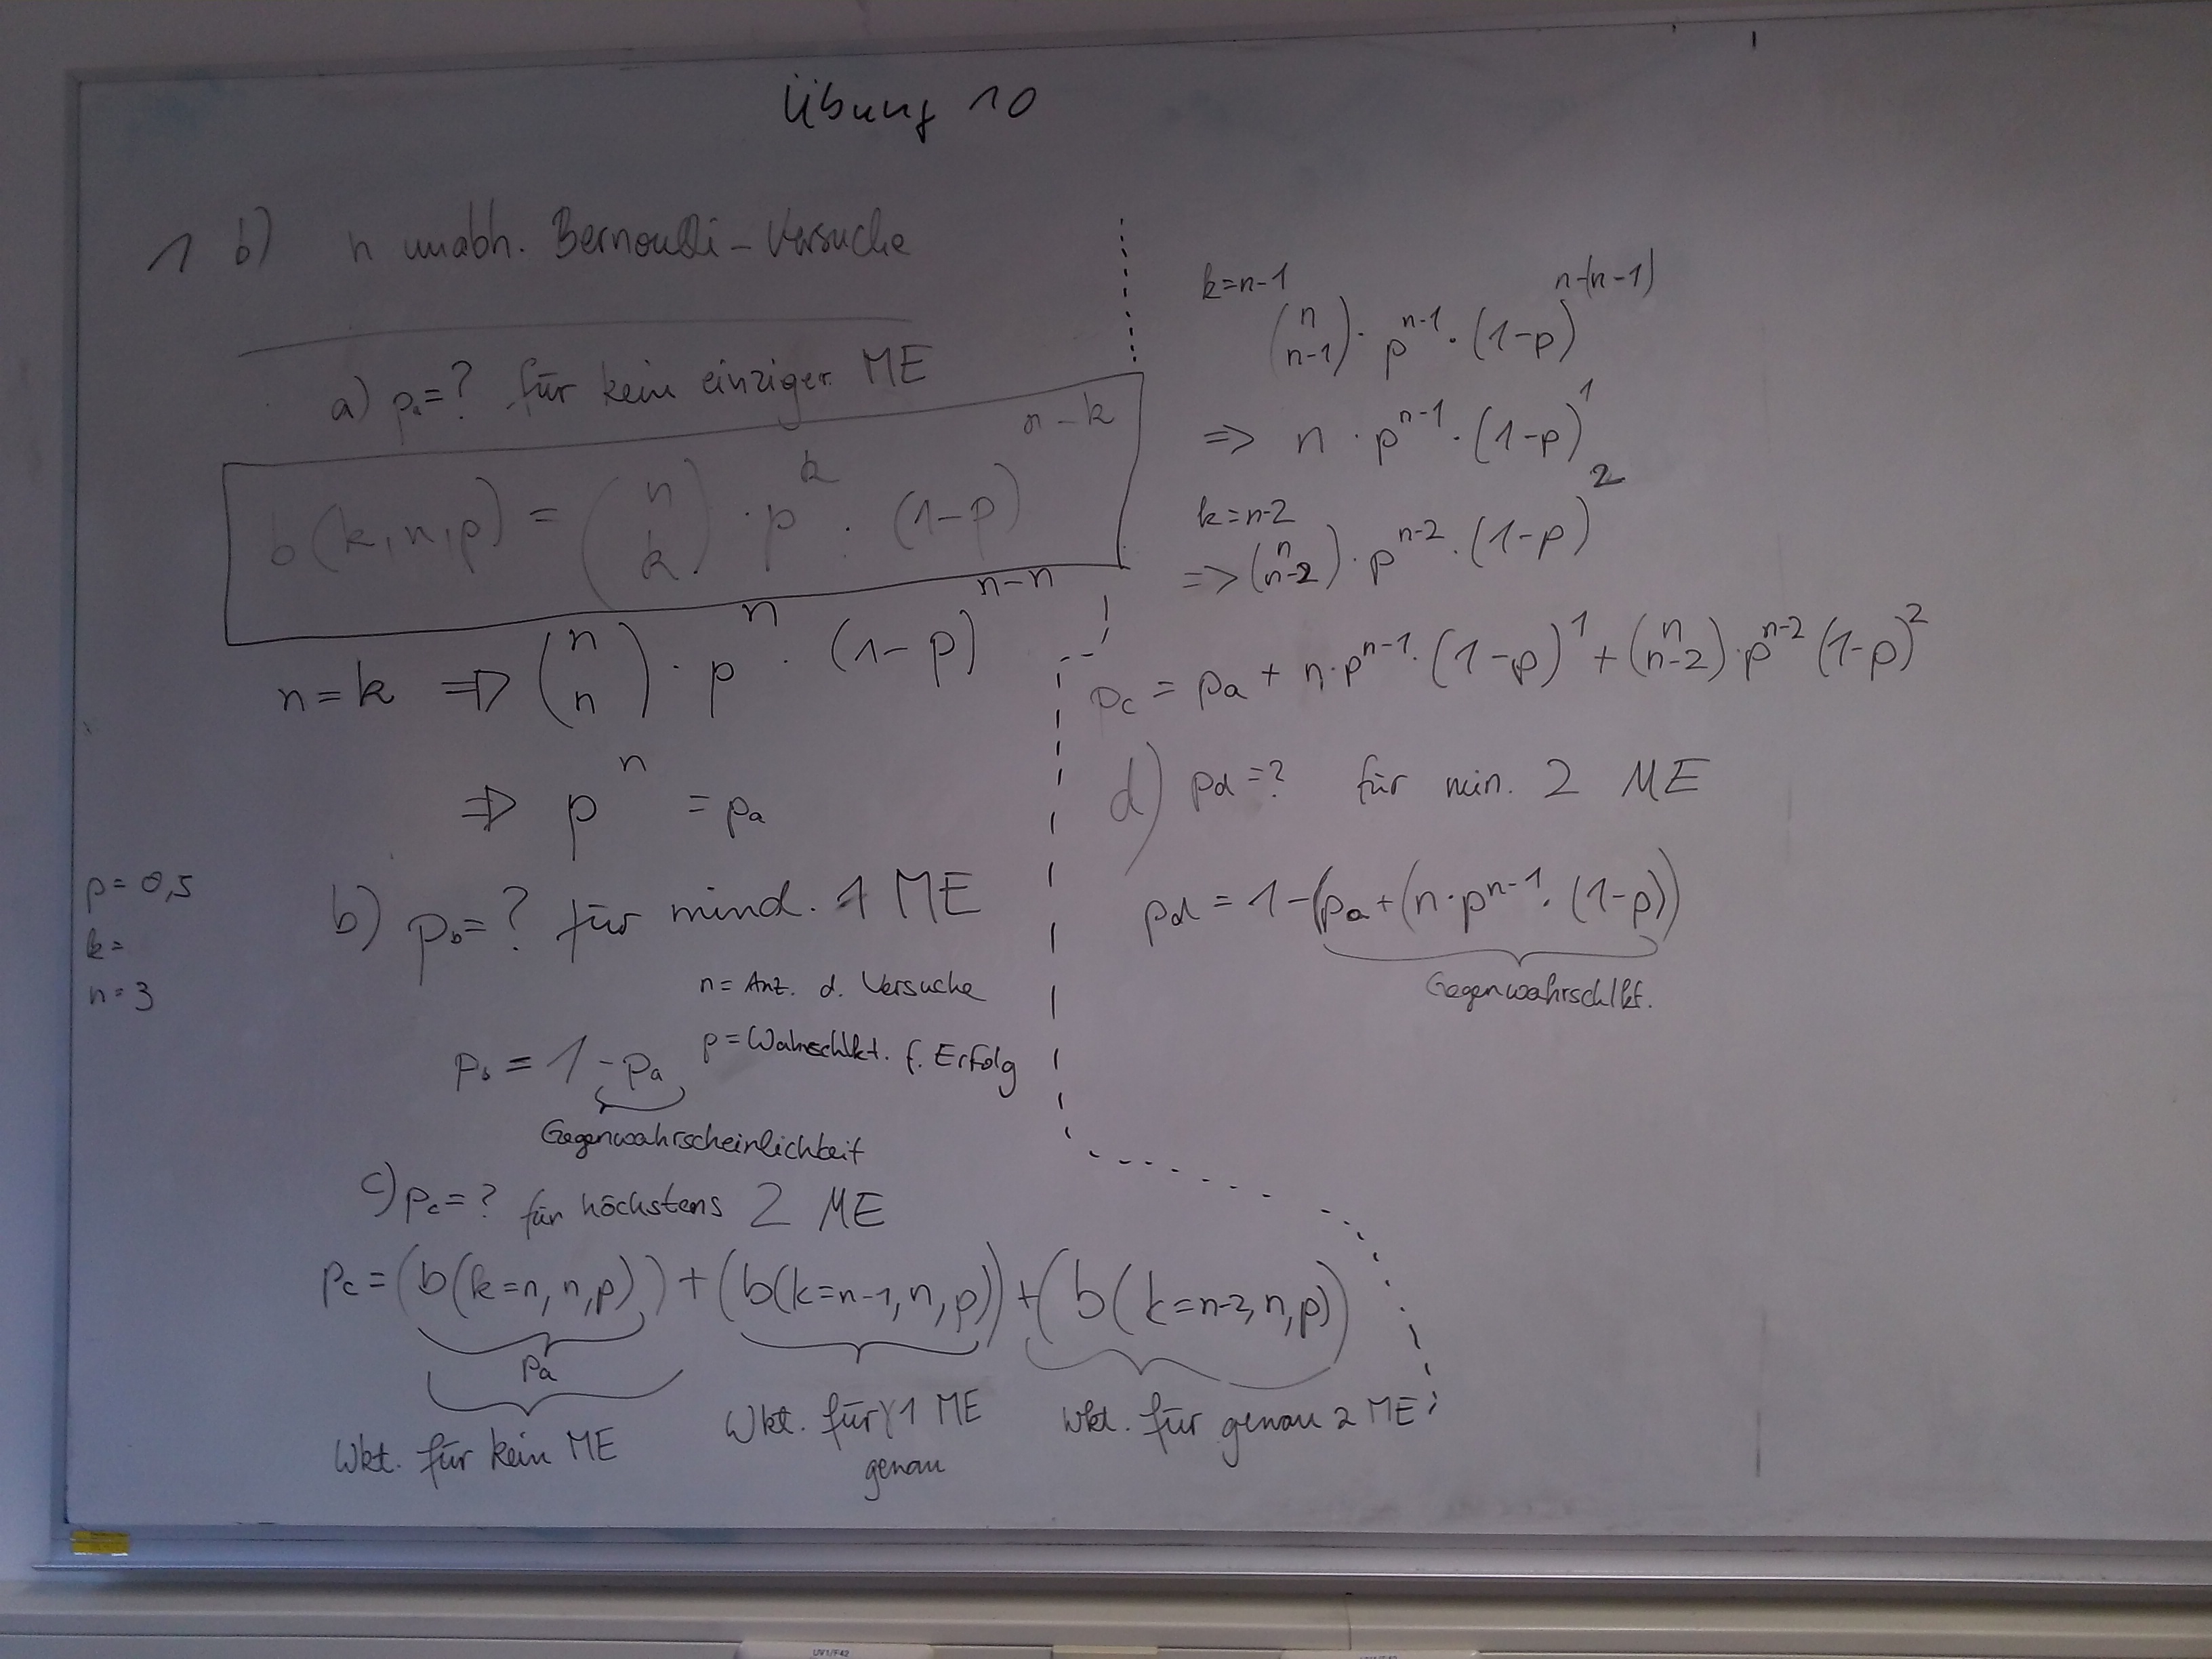 Übung 10
1 b) n unabh. Bernoulli-Versuche
a) pₐ=? für kein einziger ME
b(k,n,p) = (n k) · p^k · (1-p)^(n-k)
n=k ⇒ (n n) · p^n · (1-p)^(n-n)
⇒ p^n = pₐ
p=0,5
k=
n=3
b) p_b=? für mind. 1 ME
n= Anz. d. Versuche
p= Wahrschlkt. f. Erfolg
p_b = 1-pₐ
Gegenwahrscheinlichkeit
c) p_c=? für höchstens 2 ME
p_c = (b(k=n,n,p)) + (b(k=n-1,n,p)) + (b(k=n-2,n,p))
pₐ
Wkt. für kein ME
Wkt. für 1 ME
genau
Wkt. für genau 2 ME
k=n-1
(n n-1) · p^(n-1) · (1-p)^(n-(n-1))
=> n · p^(n-1) · (1-p)^1
k=n-2
=> (n n-2) · p^(n-2) · (1-p)^2
p_c = pₐ + n·p^(n-1) · (1-p)^1 + (n n-2) · p^(n-2) (1-p)^2
d) p_d=? für min. 2 ME
p_d = 1-(pₐ+(n·p^(n-1) · (1-p))
Gegenwahrschlkt.
UV1/F42